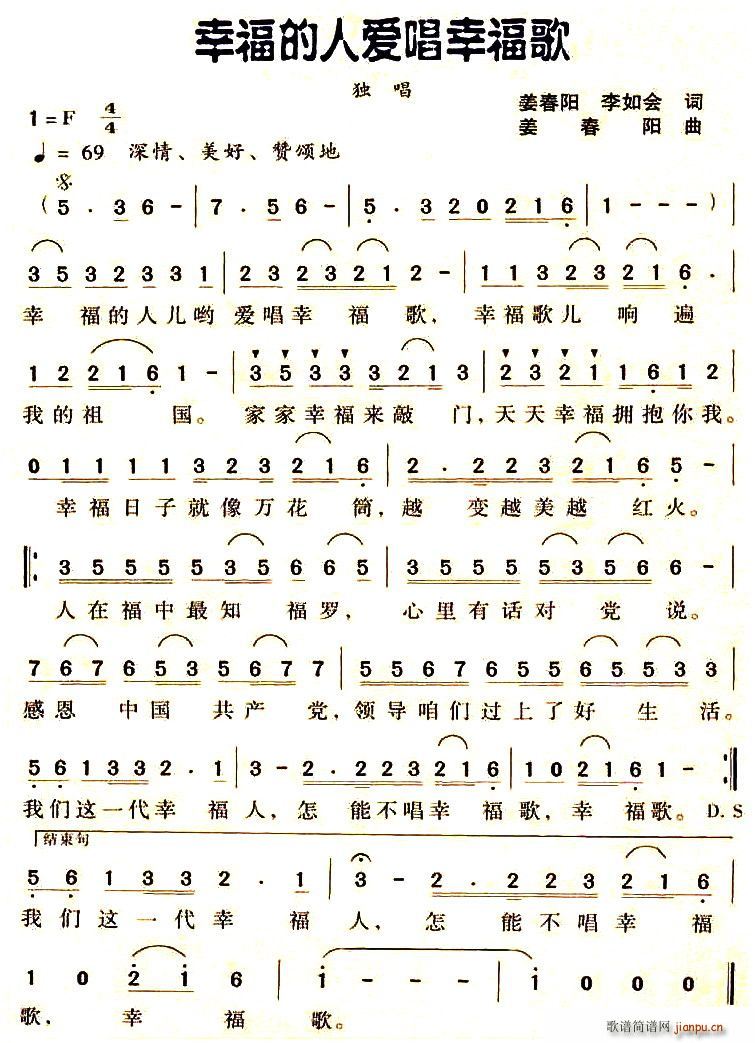 幸福的人爱唱幸福歌
独 唱
1=F 4/4
姜春阳 李如会 词
姜 春 阳 曲
♩= 69 深情、美好、赞颂地
( 5 . 3 6 - | 7 . 5 6 - | 5 . 3 2 0 2 1 6 | 1 - - - ) |
3 5 3 2 3 2 3 3 1 | 2 3 2 3 2 1 2 - | 1 1 3 2 3 2 1 6 . |
幸 福的人儿哟 爱唱幸 福 歌, 幸福歌儿 响 遍
1 2 2 1 6 1 - | 3 5 3 3 3 2 1 3 | 2 3 2 1 1 6 1 2 |
我的祖 国。 家家幸福来敲 门,天天幸福拥抱你我。
0 1 1 1 1 3 2 3 2 1 6 | 2 . 2 2 3 2 1 6 5 - |
幸福日子就像万花 筒,越 变越美越 红火。
3 5 5 5 5 3 5 6 6 5 | 3 5 5 5 5 3 5 6 6 - |
人在福中最知 福罗, 心里有话对 党 说。
7 6 7 6 5 3 5 6 7 | 5 5 6 7 6 5 5 6 5 5 3 3 |
感恩 中国 共产 党,领导咱们过上了好 生 活。
5 6 1 3 3 2 . 1 | 3 - 2 . 2 2 3 2 1 6 | 1 0 2 1 6 1 - :|
我们这一代幸 福人,怎 能不唱幸 福歌,幸 福歌。D.S
结束句
5 6 1 3 3 2 . 1 | 3 - 2 . 2 2 3 2 1 6 |
我们这一代幸 福 人, 怎 能不唱幸 福
1 0 2 1 6 | 1 - - - | 1 0 0 0 ‖
歌, 幸 福 歌。
歌谱简谱网
jianpu.cn